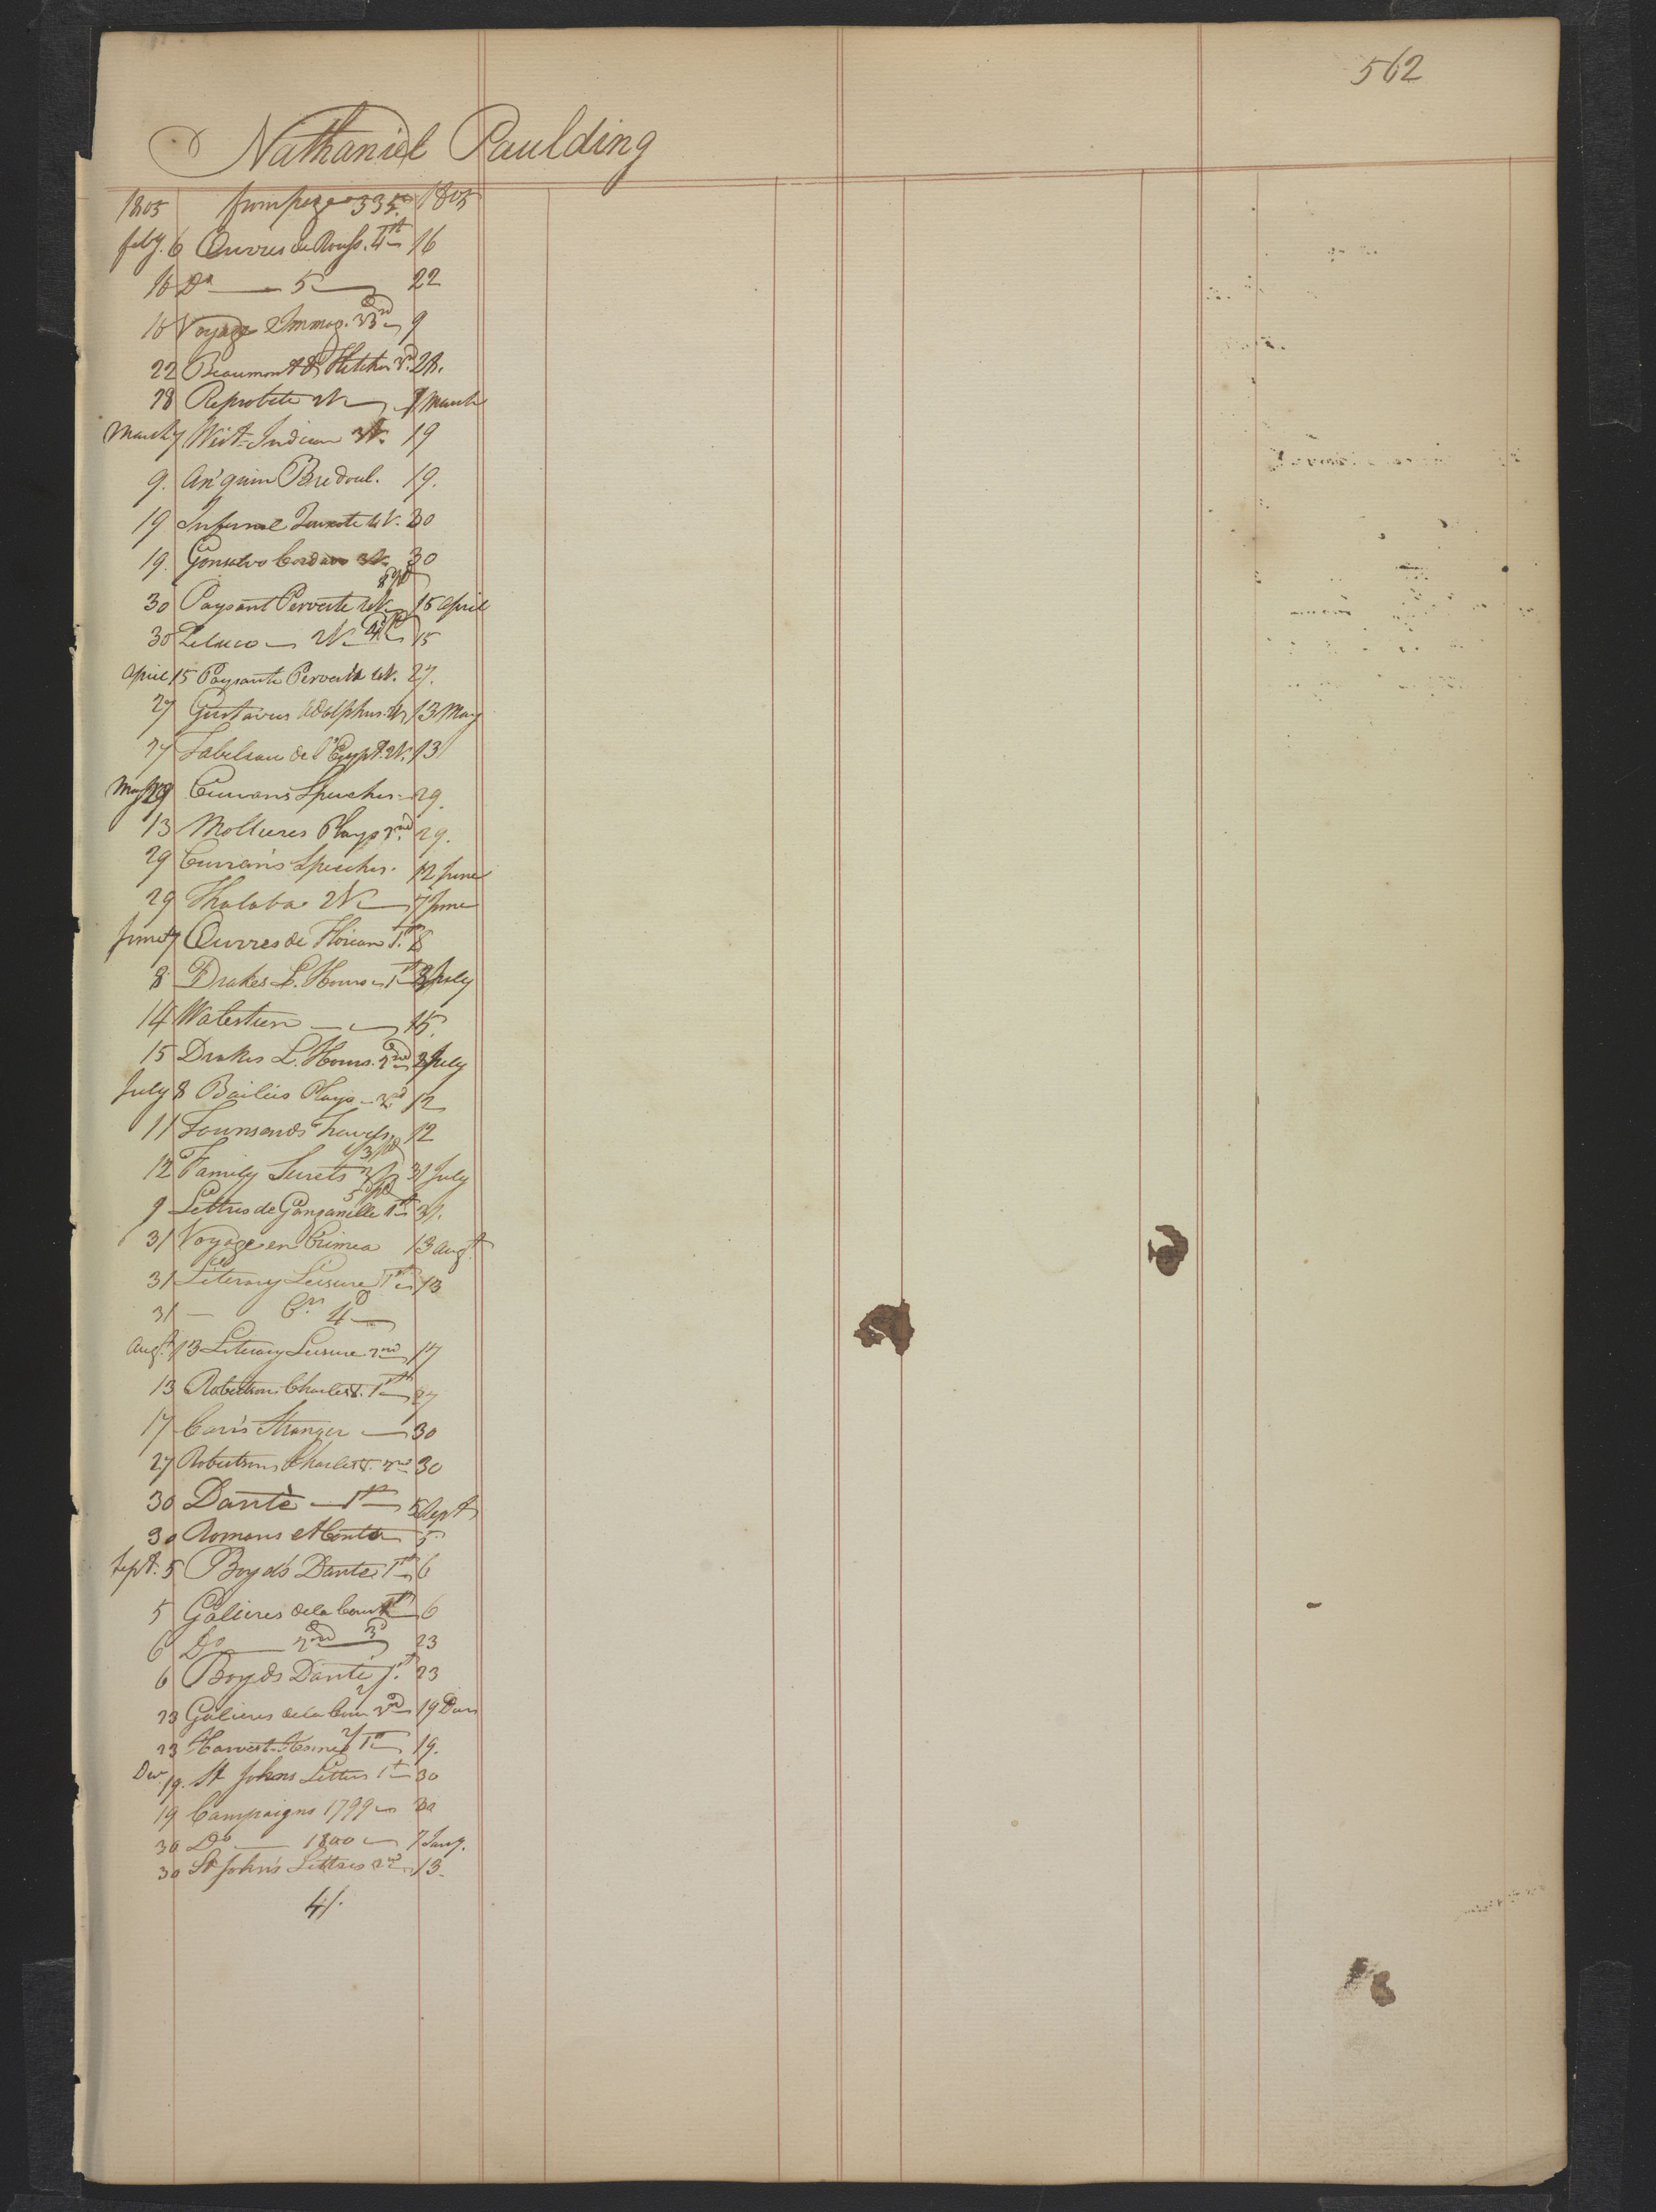 562
Nathaniel Paulding
1805 from page 335. 1805
feby. 6 Œuvres de Rouss. 4th 16
16 Do 5 22
16 Voyage Immag. 33rd 9
22 Beaumont & Fletcher 28.
28 Reprobate 2V 7 March
March 7 West-Indian 3V. 19
9. 19.
19 Infernal 30
19. Gonsalvo Cordova 30
30 Paysant Perverte 15 April
30 Zeluco 2V 15
April 15 Paysante Perverte 4V. 27.
27 Gustavus Adolphus 13 May
27 Tableau de l'Egypt. 2V. 13
May Curran's Speeches 29.
13 Mollieres Plays 2nd 29.
29 Curran's Speeches. 12 June
29 Thalaba 2V 7 June
June 7 Œuvres de Florian 1st 8
8 Drakes L. Hours 1st July
14 Walestien 15.
15 Drakes L. Hours. 2nd July
July 8 Bailies Plays 12
11 Tounsends Travels, 12
12 Family Secrets 31 July
9 Lettres de Ganganelle 1st 31.
31 Voyage en Crimea 13 Augt
31 Literary Leisure 1st 13
31 4
Augt. 13 Literary Leisure 2nd 17
13 Robertsons Charles V. 1st 27
17 Carrs Stranger 30
27 Robertsons Charles V. 2nd 30
30 Dantè 1st 5 Sept
30 Romans et Contes 5
Sept. 5 Boyds Dante 1st 6
5 Galieries de la Cour 1st 6
6 Do 2nd 3d 23
6 Boyds Dante 1st 23
23 Galieries de la Cour 19 Decr
23 Harvest-Home 1st 19.
Decr 19. St Johns Letters 1st 30
19 Campaigns 1799 30
30 Do 1800 7 Jany.
30 St John's Lettres 2nd 13
41.